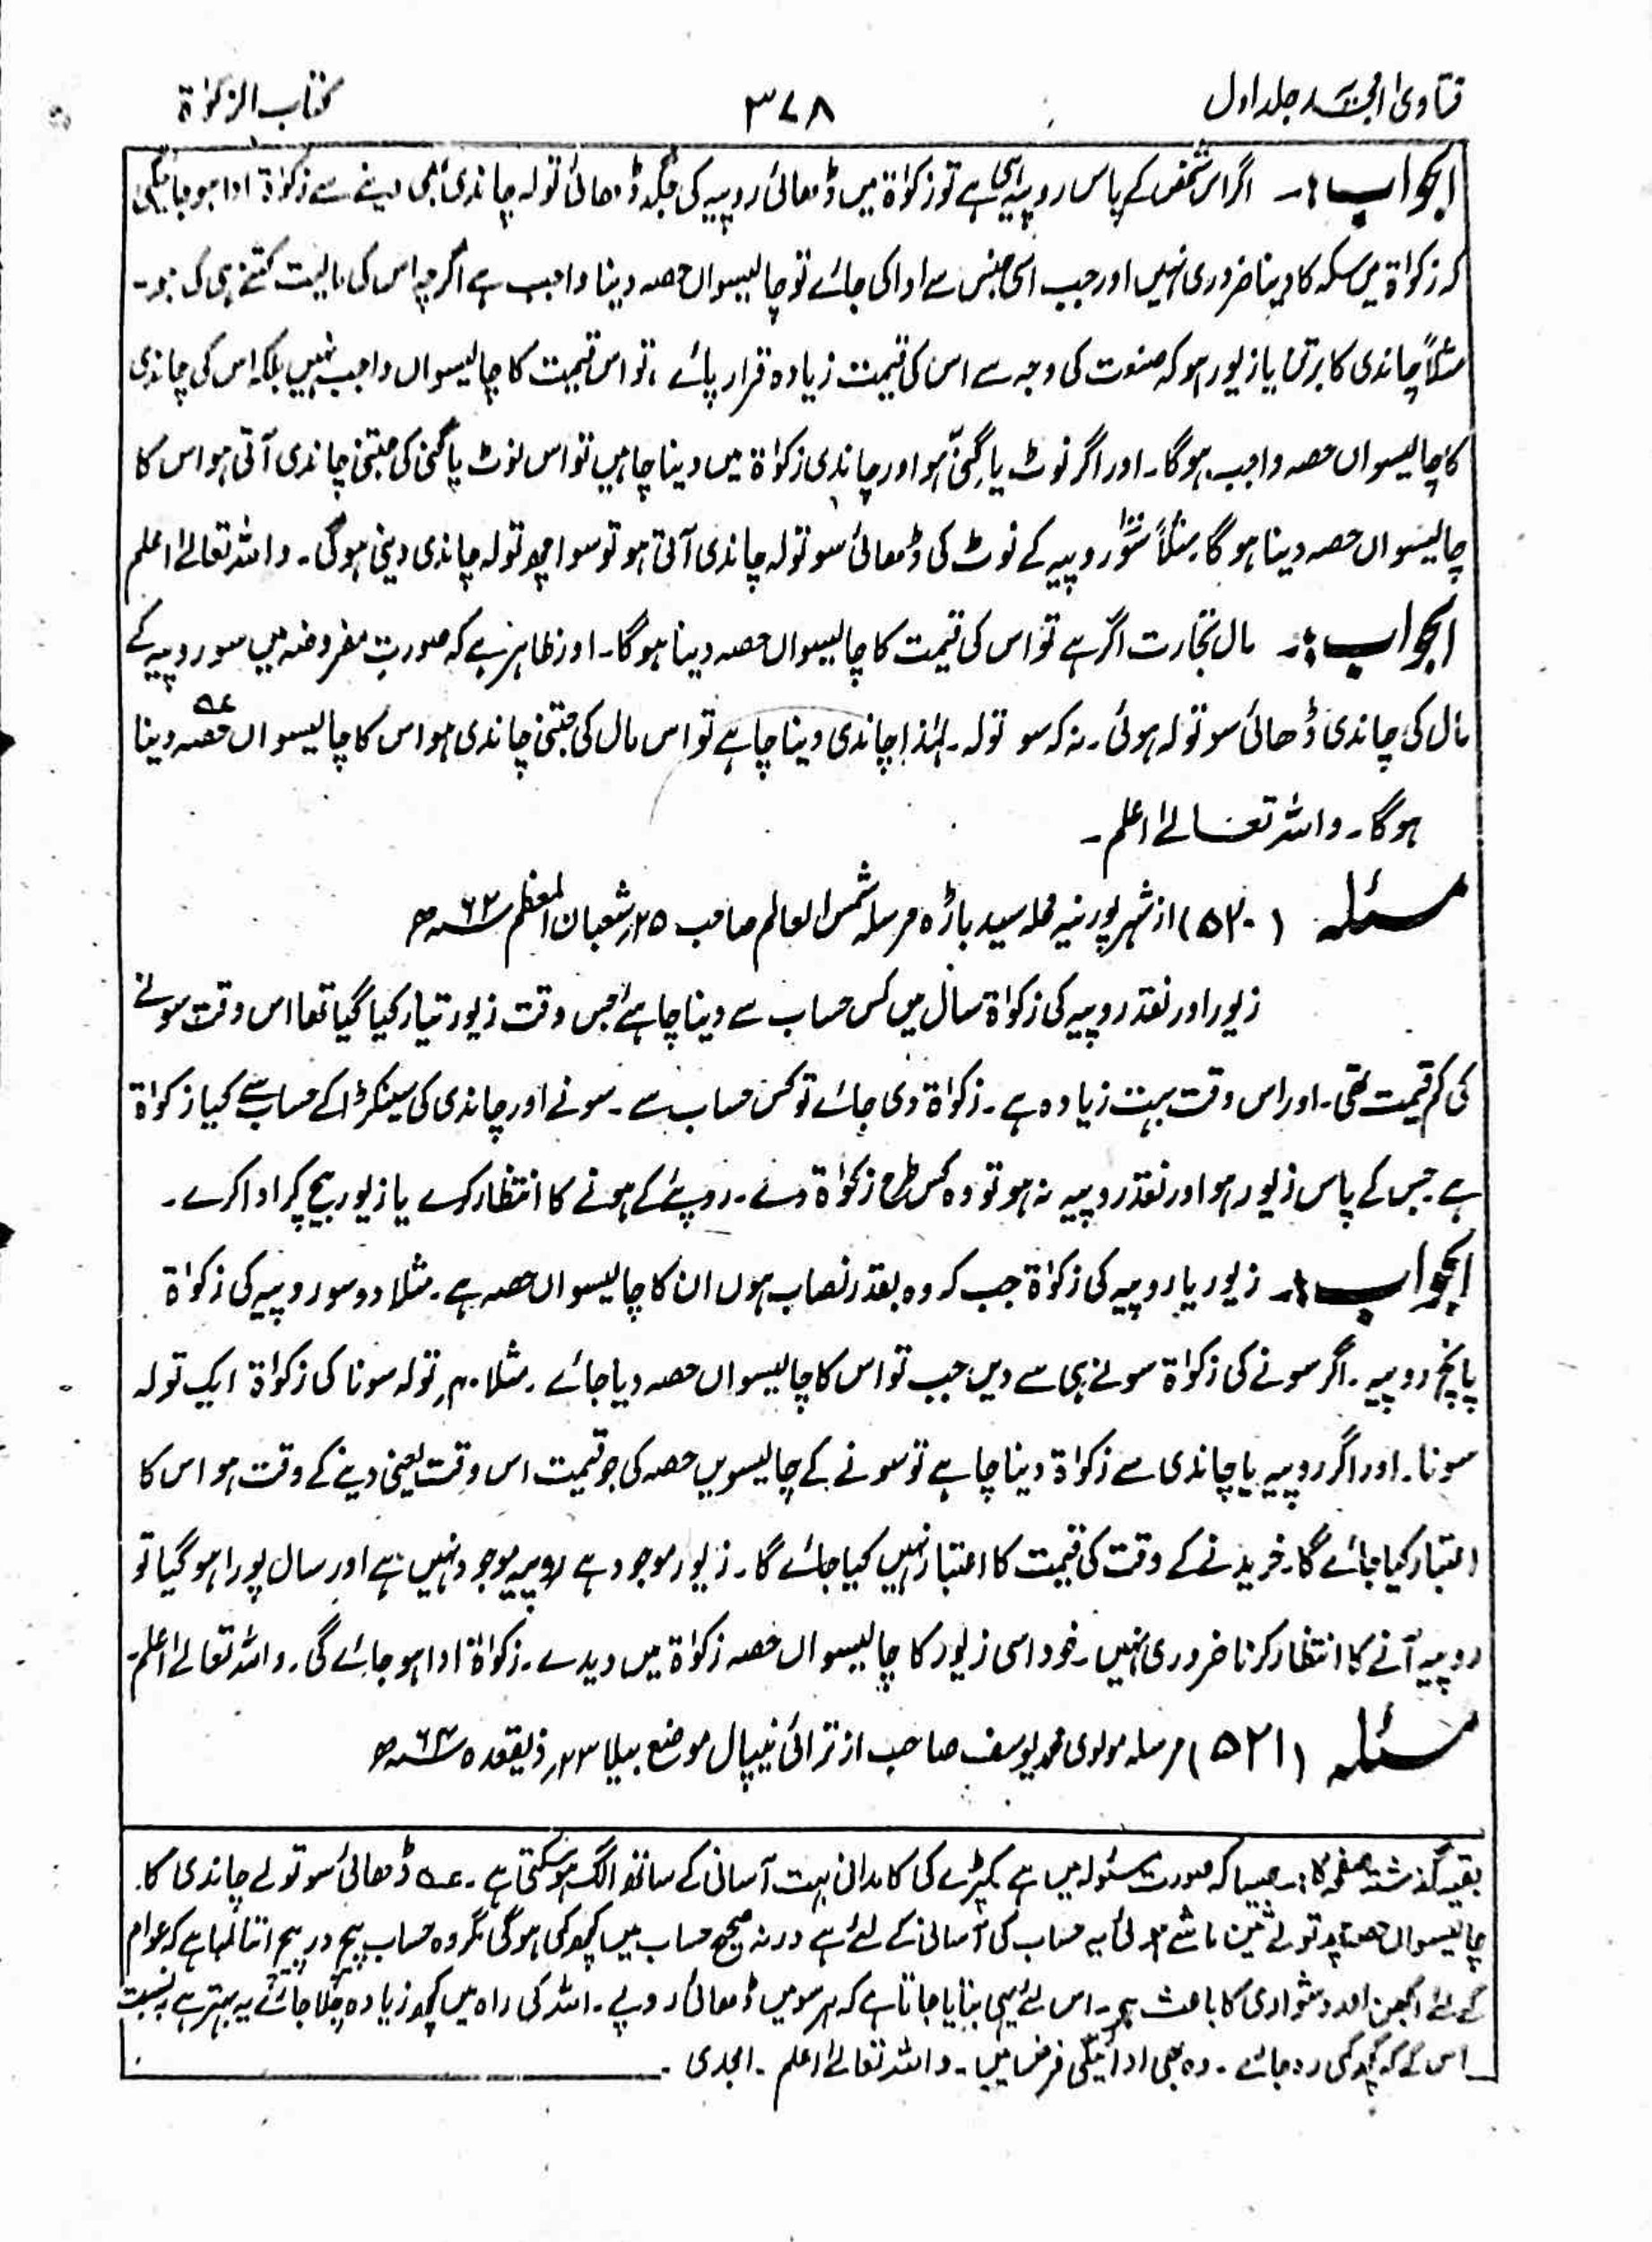 فتاویٰ امجدیہ جلد اول
۳۷۸
کتاب الزکوٰۃ
الجواب:۔ اگر اس شخص کے پاس روپیہ ہی ہے تو زکوٰۃ میں ڈھائی روپیہ کی جگہ ڈھائی تولہ چاندی بھی دینے سے زکوٰۃ ادا ہو جائیگی
کہ زکوٰۃ میں سکہ کا دینا ضروری نہیں اور جب اسی جنس سے ادا کی جائے تو چالیسواں حصہ دینا واجب ہے اگرچہ اس کی مالیت کتنے ہی کی ہو۔
مثلاً چاندی کا برتن یا زیور ہو کہ صنعت کی وجہ سے اس کی قیمت زیادہ قرار پائے، تو اس قیمت کا چالیسواں واجب نہیں بلکہ اس کی چاندی
کا چالیسواں حصہ واجب ہوگا۔ اور اگر نوٹ یا گِنی ہو اور چاندی زکوٰۃ میں دینا چاہیں تو اس نوٹ یا گنی کی جتنی چاندی آتی ہو اس کا
چالیسواں حصہ دینا ہوگا۔ مثلاً سَو روپیہ کے نوٹ کی ڈھائی سو تولہ چاندی آتی ہو تو سوا چھ تولہ چاندی دینی ہوگی۔ واللہ تعالےٰ اعلم
الجواب:۔ مال تجارت اگر ہے تو اس کی قیمت کا چالیسواں حصہ دینا ہوگا۔ اور ظاہر ہے کہ صورتِ مفروضہ میں سو روپیہ کے
مال کی چاندی ڈھائی سو تولہ ہوئی۔ نہ کہ سو تولہ۔ لہٰذا چاندی دینا چاہے تو اس مال کی جتنی چاندی ہو اس کا چالیسواں حصہ دینا
ہوگا۔ واللہ تعالےٰ اعلم۔
مسئلہ (۵۲۰) از شہر پورنیہ محلہ سید باڑہ مرسلہ شمس العالم صاحب ۲۵؍ شعبان المعظم ۶۲ھ
زیور اور نقد روپیہ کی زکوٰۃ سال میں کس حساب سے دینا چاہئے جس وقت زیور تیار کیا گیا تھا اس وقت سونے
کی کم قیمت تھی۔ اور اس وقت بہت زیادہ ہے۔ زکوٰۃ دی جائے تو کس حساب سے۔ سونے اور چاندی کی سینکڑا کے حساب سے کیا زکوٰۃ
ہے جس کے پاس زیور ہو اور نقد روپیہ نہ ہو تو وہ کس طرح زکوٰۃ دے۔ روپئے کے ہونے کا انتظار کرے یا زیور بیچ کر ادا کرے۔
الجواب:۔ زیور یا روپیہ کی زکوٰۃ جب کہ وہ بقدر نصاب ہوں ان کا چالیسواں حصہ ہے۔ مثلا دو سو روپیہ کی زکوٰۃ
پانچ روپیہ۔ اگر سونے کی زکوٰۃ سونے ہی سے دیں جب تو اس کا چالیسواں حصہ دیا جائے۔ مثلا ۴۰؍ تولہ سونا کی زکوٰۃ ایک تولہ
سونا۔ اور اگر روپیہ یا چاندی سے زکوٰۃ دینا چاہے تو سونے کے چالیسویں حصہ کی جو قیمت اس وقت یعنی دینے کے وقت ہو اس کا
اعتبار کیا جائے گا۔ خریدنے کے وقت کی قیمت کا اعتبار نہیں کیا جائے گا۔ زیور موجود ہے روپیہ موجود نہیں ہے اور سال پورا ہو گیا تو
روپیہ آنے کا انتظار کرنا ضروری نہیں۔ خود اسی زیور کا چالیسواں حصہ زکوٰۃ میں دیدے۔ زکوٰۃ ادا ہو جائے گی۔ واللہ تعالےٰ اعلم۔
مسئلہ (۵۲۱) مرسلہ مولوی محمد یوسف صاحب از ترائی نیپال موضع بیلا ۲۳؍ ذیقعدہ ۶۴ھ
بقیہ گذشتہ صفحہ کا:۔ جیسا کہ صورت مسئولہ میں ہے کپڑے کی کامدانی بہت آسانی کے ساتھ الگ ہو سکتی ہے۔ عہ ڈھائی سو تولے چاندی کا
چالیسواں حصہ چھ تولے تین ماشے ہوئی یہ حساب کی آسانی کے لئے ہے ورنہ صحیح حساب میں کچھ کمی ہوگی مگر وہ حساب پیچ در پیچ اتنا لمبا ہے کہ عوام
کے لئے الجھن اور دشواری کا باعث ہے۔ اس لئے یہی بتایا جاتا ہے کہ ہر سو میں ڈھائی روپے۔ اللہ کی راہ میں کچھ زیادہ چلا جائے یہ بہتر ہے بہ نسبت
اس کے کہ کچھ کمی رہ جائے۔ وہ بھی ادائیگی فرض میں۔ واللہ تعالےٰ اعلم۔ امجدی۔